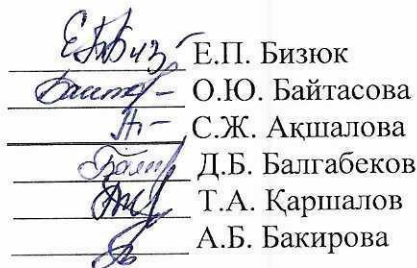 Е.П. Бизюк
О.Ю. Байтасова
С.Ж. Ақшалова
Д.Б. Балгабеков
Т.А. Қаршалов
А.Б. Бакирова